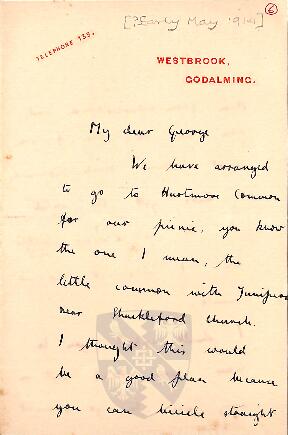 [?Early May 1914]
6
TELEPHONE 133.
WESTBROOK,
GODALMING.
My dear George
We have arranged
to go to Hurtmore Common
for our picnic, you know
the one I mean, the
little common with Junipers
near Shackleford Church.
I thought this would
be a good plan because
you can bicicle straight